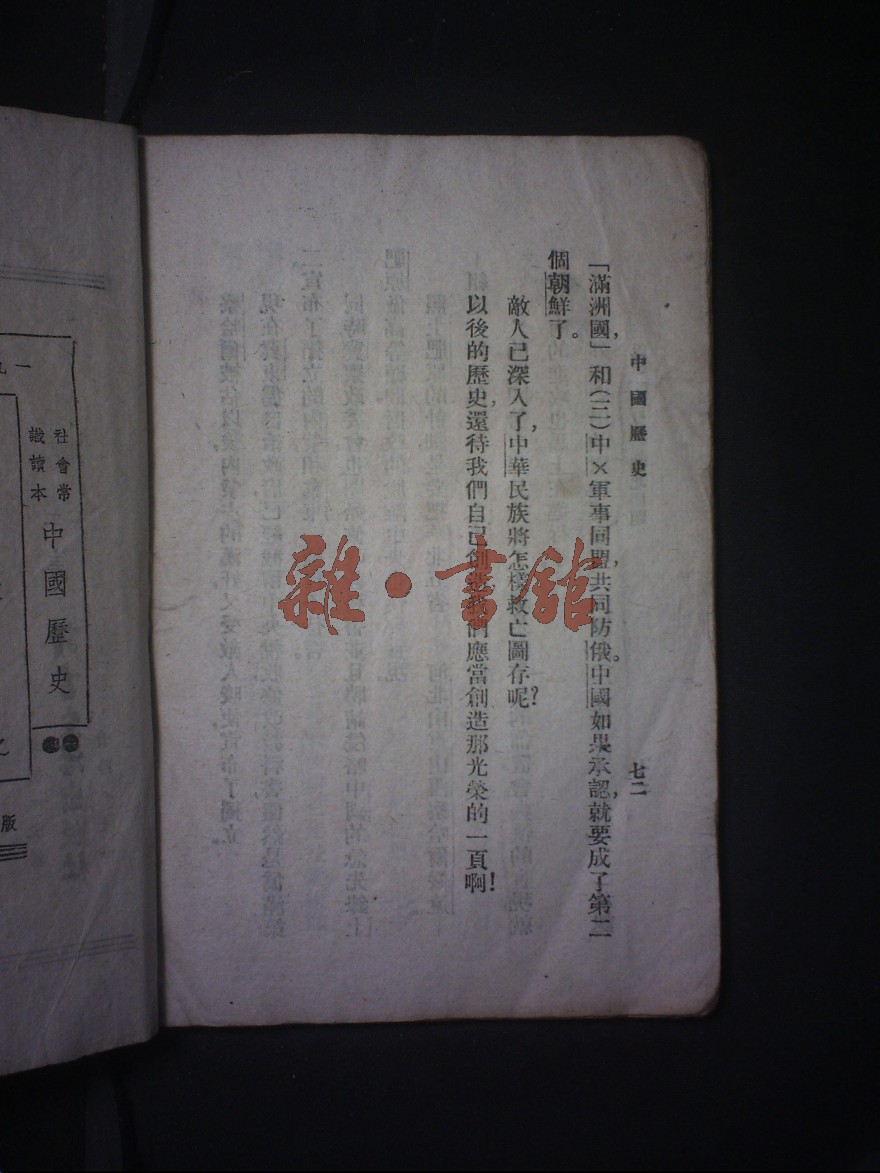 中國歷史
七二
「滿洲國」，和(三)中×軍事同盟，共同防俄。中國如果承認，就要成了第二
個朝鮮了。
敵人已深入了，中華民族將怎樣救亡圖存呢？
以後的歷史，還待我們自己創造，我們應當創造那光榮的一頁啊！
雜·書館
一九
社會常
識讀本
中國歷史
版